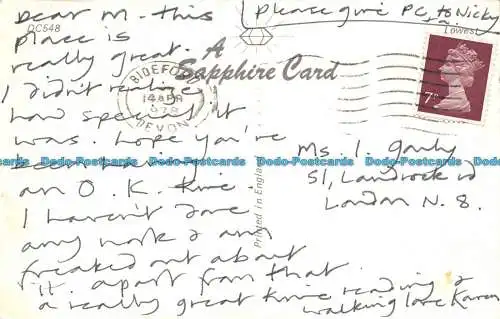 please give PC, to Nicky
Dear M - this
place is
really great.
I didn't realise
how special it
was. hope you're
been having
an O.K. time.
I haven't done
any work & am
freaked out about
it. apart from that
a really great time reading &
walking love Karen
DC548
A
Sapphire Card
BIDEFORD
14 APR
1978
DEVON
7P
Printed in England
Ms. I.
51, Landrock rd
London N. 8.
Lowest
Dodo-Postcards.com